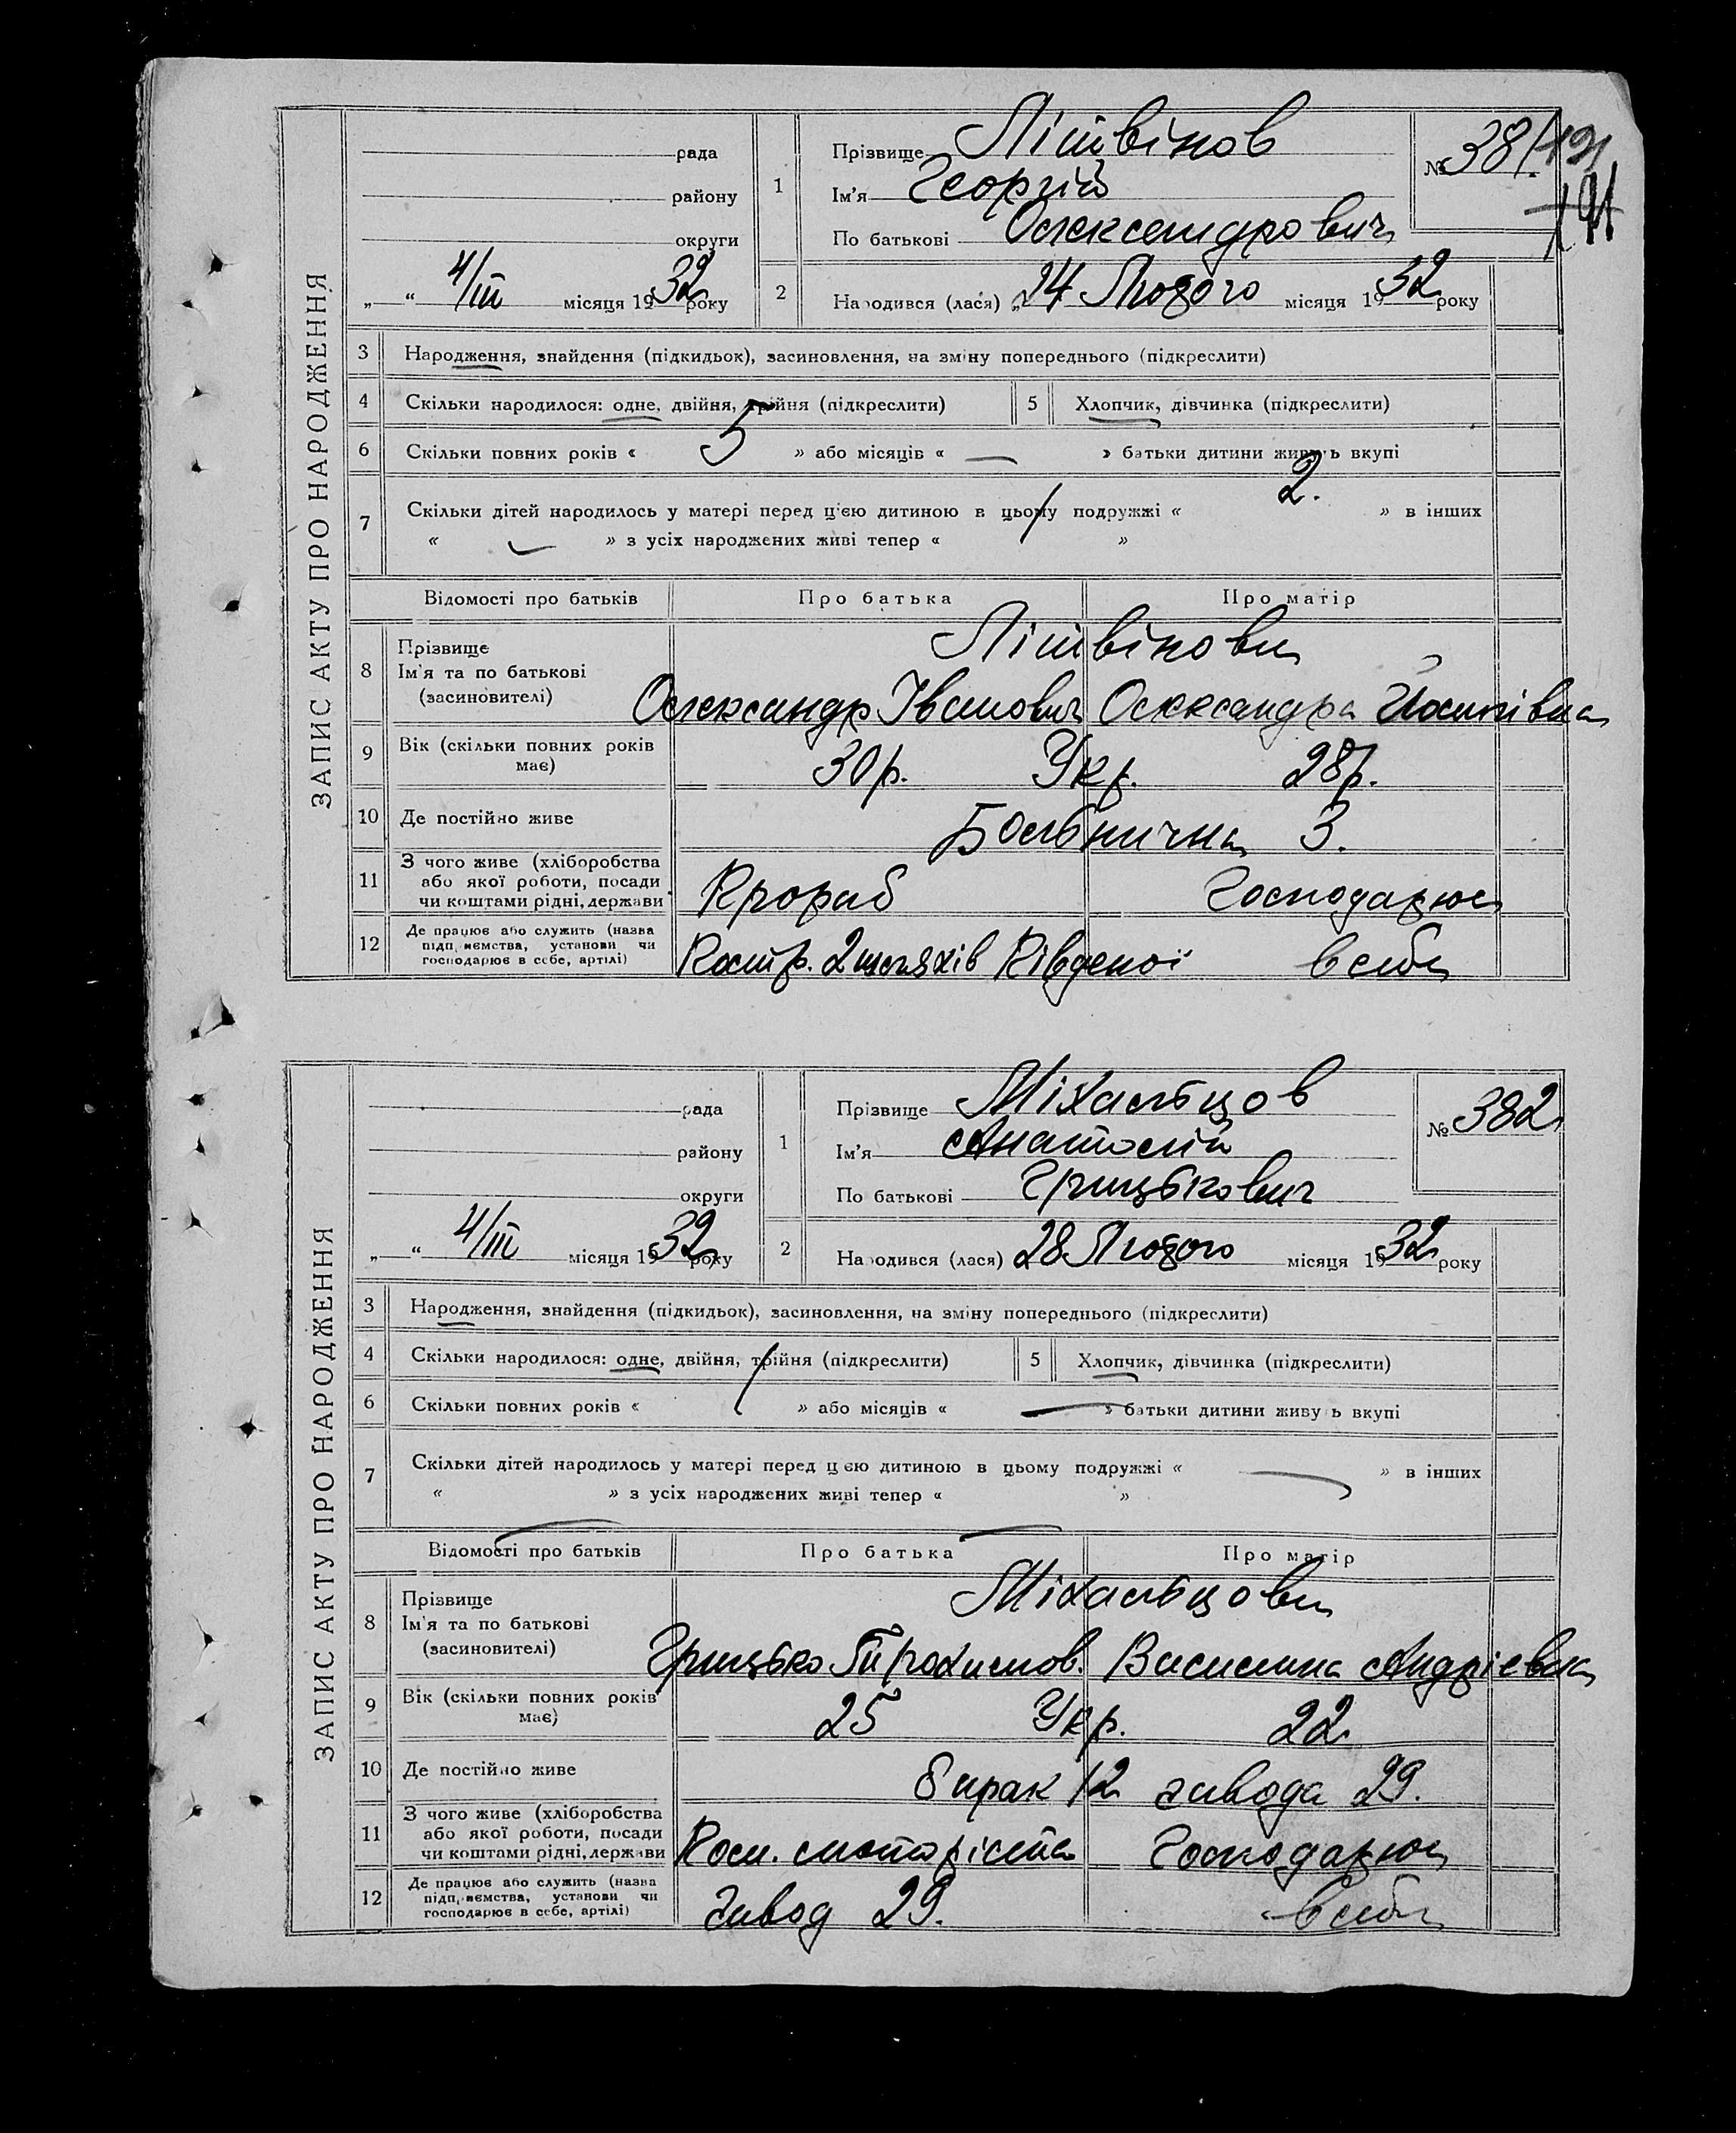 ЗАПИС АКТУ ПРО НАРОДЖЕННЯ
рада
району
округи
„ “ 4/III місяця 1932 року
1
Прізвище Літвінов
Ім’я Георгій
По батькові Олександрович
№ 381. 191
191
2 Народився (лася) „24 Лютого місяця 1932 року
3 Народження, знайдення (підкидьок), засиновлення, на зміну попереднього (підкреслити)
4 Скільки народилося: одне, двійня, трійня (підкреслити) 5 Хлопчик, дівчинка (підкреслити)
6 Скільки повних років « 5 » або місяців « — » батьки дитини живуть вкупі
7 Скільки дітей народилось у матері перед цією дитиною в цьому подружжі « 2. » в інших
« » з усіх народжених живі тепер « »
Відомості про батьків Про батька Про матір
8 Прізвище
Ім’я та по батькові
(засиновителі)
Літвінови
Олександр Іванович Олександра Йосипівна
9 Вік (скільки повних років має) 30р. Укр. 28р.
10 Де постійно живе Больнична 3.
11 З чого живе (хліборобства
або якої роботи, посади
чи коштами рідні, держави
Прораб Господарює
12 Де працює або служить (назва
підприємства, установи чи
господарює в себе, артілі)
2 шляхів Південої в себе
ЗАПИС АКТУ ПРО НАРОДЖЕННЯ
рада
району
округи
„ “ 4/III місяця 1932 року
1
Прізвище Міхальцов
Ім’я Анатолій
По батькові Грицькович
№ 382
2 Народився (лася) 28 Лютого місяця 1932 року
3 Народження, знайдення (підкидьок), засиновлення, на зміну попереднього (підкреслити)
4 Скільки народилося: одне, двійня, трійня (підкреслити) 5 Хлопчик, дівчинка (підкреслити)
6 Скільки повних років « 1 » або місяців « — » батьки дитини живуть вкупі
7 Скільки дітей народилось у матері перед цією дитиною в цьому подружжі « — » в інших
« — » з усіх народжених живі тепер « — »
Відомості про батьків Про батька Про матір
8 Прізвище
Ім’я та по батькові
(засиновителі)
Міхальцови
Грицько Трохимов. Василина Андрієвна
9 Вік (скільки повних років має) 25 Укр. 22
10 Де постійно живе барак 12 завода 29.
11 З чого живе (хліборобства
або якої роботи, посади
чи коштами рідні, держави
Пом. моторіста Господарює
12 Де працює або служить (назва
підприємства, установи чи
господарює в себе, артілі)
Завод 29. в себе